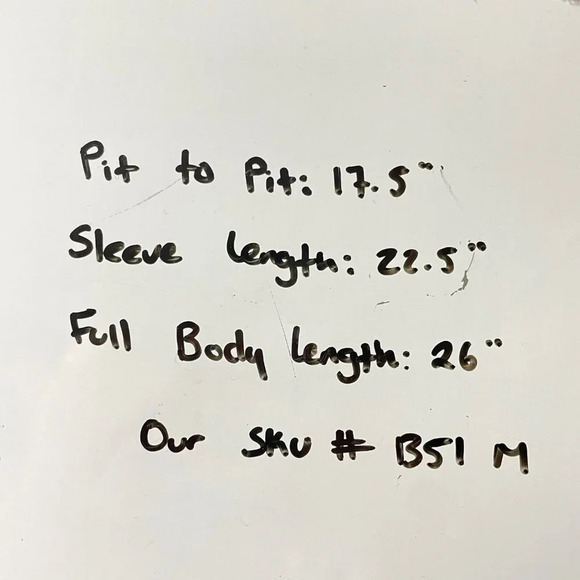 Pit to Pit: 17.5"
Sleeve Length: 22.5"
Full Body Length: 26"
Our SKU # B51 M